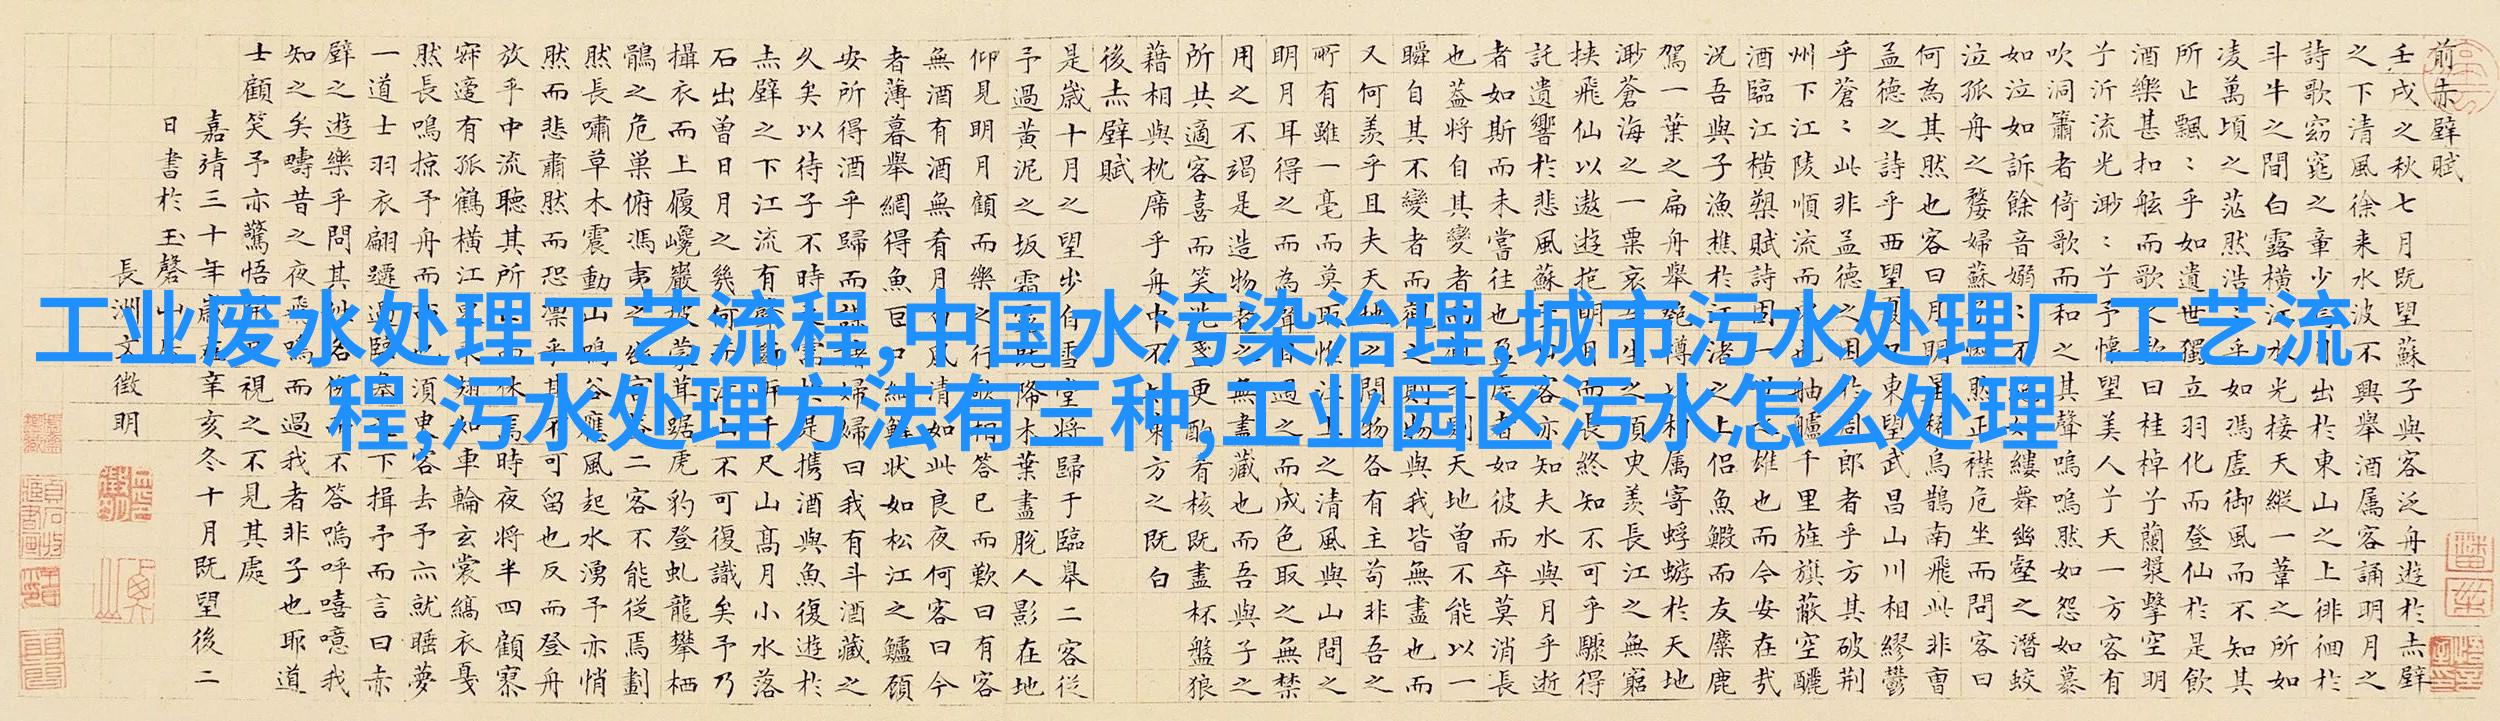 前赤壁賦
壬戌之秋七月既望蘇子與客泛舟遊於赤壁
之下清風徐来水波不興舉酒属客誦明月之
詩歌窈窕之章少焉月出於東山之上徘徊於
斗牛之間白露横江水光接天縱一葦之所如
凌萬頃之茫然浩﹕乎如馮虚御風而不知其
所止飄﹕乎如遺世獨立羽化而登仙於是飲
酒樂甚扣舷而歌之歌曰桂棹兮蘭漿擊空明
兮泝流光渺﹕兮予懷望美人兮天一方客有
吹洞簫者倚歌而和之其聲嗚嗚然如怨如慕
如泣如訴餘音嫋﹕不絶如縷舞幽壑之潛蛟
泣孤舟之嫠婦蘇子愀然正襟危坐而問客曰
何為其然也客曰月明星稀烏鵲南飛此非曹
孟德之詩乎西望夏口東望武昌山川相繆鬱
乎蒼﹕此非孟德之困於周郎者乎方其破荆
州下江陵順流而東也舳艫千里旌旗蔽空釃
酒臨江横槊賦詩固一世之雄也而今安在哉
况吾與子漁樵於江渚之上侣魚鰕而友麋鹿
駕一葉之扁舟舉匏樽以相属寄蜉蝣於天地
渺蒼海之一粟哀吾生之須臾羡長江之無窮
挟飛仙以遨遊抱明月而長終知不可乎驟得
託遺響於悲風蘇子曰客亦知夫水與月乎逝
者如斯而未嘗往也盈虚者如彼而卒莫消長
也蓋將自其變者而觀之則天地曾不能以一
瞬自其不變者而觀之則物與我皆無盡也而
又何羡乎且夫天地之間物各有主苟非吾之
所有雖一毫而莫取惟江上之清風與山間之
明月耳得之而為聲目遇之而成色取之無禁
用之不竭是造物者之無盡藏也而吾與子之
所共適客喜而笑洗盞更酌肴核既盡杯盤狼
藉相與枕席乎舟中不知東方之既白
後赤壁賦
是歲十月之望步自雪堂將歸于臨皋二客從
予過黄泥之坂霜露既降木葉盡脱人影在地
仰見明月顧而樂之行歌相答已而歎曰有客
無酒有酒無肴月白風清如此良夜何客曰今
者薄暮舉網得魚巨口細鱗状如松江之鱸顧
安所得酒乎歸而謀諸婦婦曰我有斗酒藏之
久矣以待子不時之需於是携酒與魚復遊於
赤壁之下江流有聲斷岸千尺山高月小水落
石出曽日月之幾何而江山不可復識矣予乃
攝衣而上履巉巖披蒙茸踞虎豹登虬龍攀栖
鶻之危巢俯馮夷之幽宫盖二客不能從焉劃
然長嘯草木震動山鳴谷應風起水湧予亦悄
然而悲肅然而恐凛乎其不可留也反而登舟
放乎中流聽其所止而休焉時夜将半四顧寥
寂適有孤鶴横江東来翅如車輪玄裳縞衣戛
然長鳴掠予舟而西也須臾客去予亦就睡夢
一道士羽衣翩躚過臨皋之下揖予而言曰赤
壁之遊樂乎問其姓名俛而不答嗚呼噫嘻我
知之矣疇昔之夜飛鳴而過我者非子也耶道
士顧笑予亦驚悟開户視之不見其處
嘉靖三十年歲在辛亥冬十月既望後二
日書於玉磬山房
長洲文徵明
工业废水处理工艺流程,中国水污染治理,城市污水处理厂工艺流
程,污水处理方法有三种,工业园区污水怎么处理